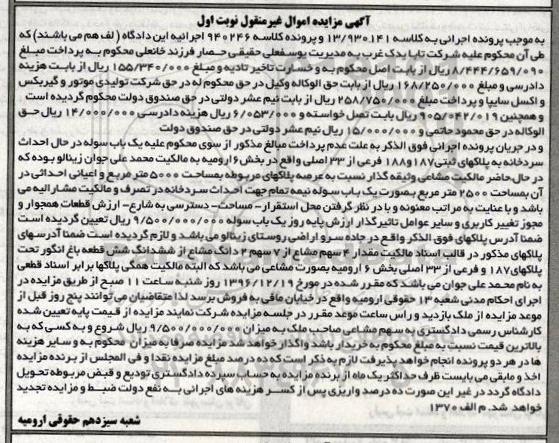 آگهی مزایده اموال غیرمنقول نوبت اول
به موجب پرونده اجرائی به کلاسه ۱۳/۹۳۰۱۴۱ و پرونده کلاسه ۹۴۰۲۴۶ اجرائیه این دادگاه (لف هم می باشند) که
طی آن محکوم علیه شرکت تایا یدک غرب به مدیریت یوسفعلی حقیقی حصار فرزند خانعلی محکوم به پرداخت مبلغ
۸/۴۴۴/۶۵۹/۰۹۰ ریال از بابت اصل محکوم به و خسارت تاخیر تادیه و مبلغ ۱۵۵/۳۴۰/۰۰۰ ریال از بابت هزینه
دادرسی و مبلغ ۱۶۸/۲۵۰/۰۰۰ ریال از بابت حق الوکاله وکیل در حق محکوم له در حق شرکت تولیدی موتور و گیربکس
و اکسل سایپا و پرداخت مبلغ ۲۵۸/۷۵۰/۰۰۰ ریال از بابت نیم عشر دولتی در حق صندوق دولت محکوم گردیده است
و همچنین ۹۰۵/۰۴۲/۰۱۹ ریال بابت اصل خواسته و ۶/۰۵۳/۰۰۰ هزینه دادرسی ۱۴/۰۰۰/۰۰۰ ریال حق
الوکاله در حق محمود حاتمی و ۱۵/۰۰۰/۰۰۰ ریال نیم عشر دولتی در حق صندوق دولت
و در جریان پرونده اجرائی فوق الذکر به علت عدم پرداخت مبالغ مذکور از سوی محکوم علیه یک باب سوله در حال احداث
سردخانه به پلاکهای ثبتی ۱۸۷ و ۱۸۸ فرعی از ۳۳ اصلی واقع در بخش ۶ ارومیه به مالکیت محمد علی جوان زینالو بوده که
در حال حاضر مالکیت مشاعی وثیقه گذار نسبت به عرصه پلاکهای مربوطه بمساحت ۵۰۰۰ متر مربع و اعیانی احداثی در
آن بمساحت ۲۵۰۰ متر مربع بصورت یک باب سوله نیمه تمام جهت احداث سردخانه در تصرف و مالکیت مشارالیه می
باشد و با عنایت به مراتب معنونه و با در نظر گرفتن محل استقرار- مساحت- دسترسی به شارع- ارزش قطعات همجوار و
مجوز تغییر کاربری و سایر عوامل تاثیر گذار ارزش پایه روز یک باب سوله ۹/۵۰۰/۰۰۰/۰۰۰ ریال تعیین گردیده است
ضمنا آدرس پلاکهای فوق الذکر واقع در جاده سرو اراضی روستای زینالو می باشد و لازم گردیده است ضمنا آدرسهای
پلاکهای مذکور در قالب اسناد مالکیت مقدار ۴ سهم مشاع از ۷ سهم ۲ دانگ مشاع از ششدانگ شش قطعه باغ انگور تحت
پلاکهای ۱۸۷ و فرعی از ۳۳ اصلی بخش ۶ ارومیه بصورت مشاعی می باشد که البته مالکیت همگی پلاکها برابر اسناد قطعی
به نام محمد علی جوان می باشد که مقرر شده در مورخ ۱۳۹۶/۱۲/۱۹ روز شنبه ساعت ۱۱ صبح از طریق مزایده در
اجرای احکام مدنی شعبه ۱۳ حقوقی ارومیه واقع در خیابان مافی به فروش برسد لذا متقاضیان می توانند پنج روز قبل از
موعد مزایده از ملک بازدید و راس ساعت موعد مقرر در جلسه مزایده شرکت نمایند مزایده از قیمت پایه تعیین شده
کارشناس رسمی دادگستری به سهم مشاعی صاحب ملک به میزان ۹/۵۰۰/۰۰۰/۰۰۰ ریال شروع و به کسی که به
بالاترین قیمت نسبت به مبلغ محکوم به خریدار باشد واگذار خواهد شد مزایده صرفا به میزان محکوم به و سایر هزینه
ها در هر دو پرونده انجام خواهد پذیرفت لازم به ذکر است که ده درصد مبلغ مزایده نقدا و فی المجلس از برنده مزایده
اخذ و مابقی می بایست ظرف حداکثر یک ماه از برنده مزایده به حساب سپرده دادگستری تودیع و قبض مربوطه تحویل
دادگاه گردد در غیر این صورت ده درصد واریزی پس از کسر هزینه های اجرائی به نفع دولت ضبط و مزایده تجدید
خواهد شد. م الف ۱۳۷۰
شعبه سیزدهم حقوقی ارومیه